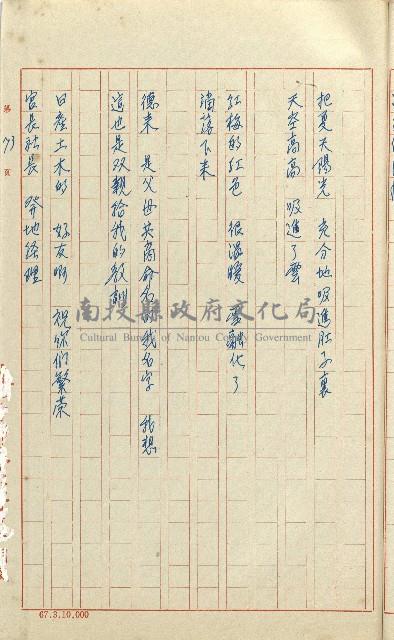 把夏天陽光　充分地吸進肚子裏
天空高高　吸進了雲
紅梅的紅色　很溫暖　雪融化了
滴落下來
德來　是父母共商命名的我名字　我想
這也是双親給我的教訓
日產土木的　好友啊　祝你們繁荣
宮長社長　發地經理
第 73 頁
南投縣政府文化局
Cultural Bureau of Nantou County Government
67.3.10.000